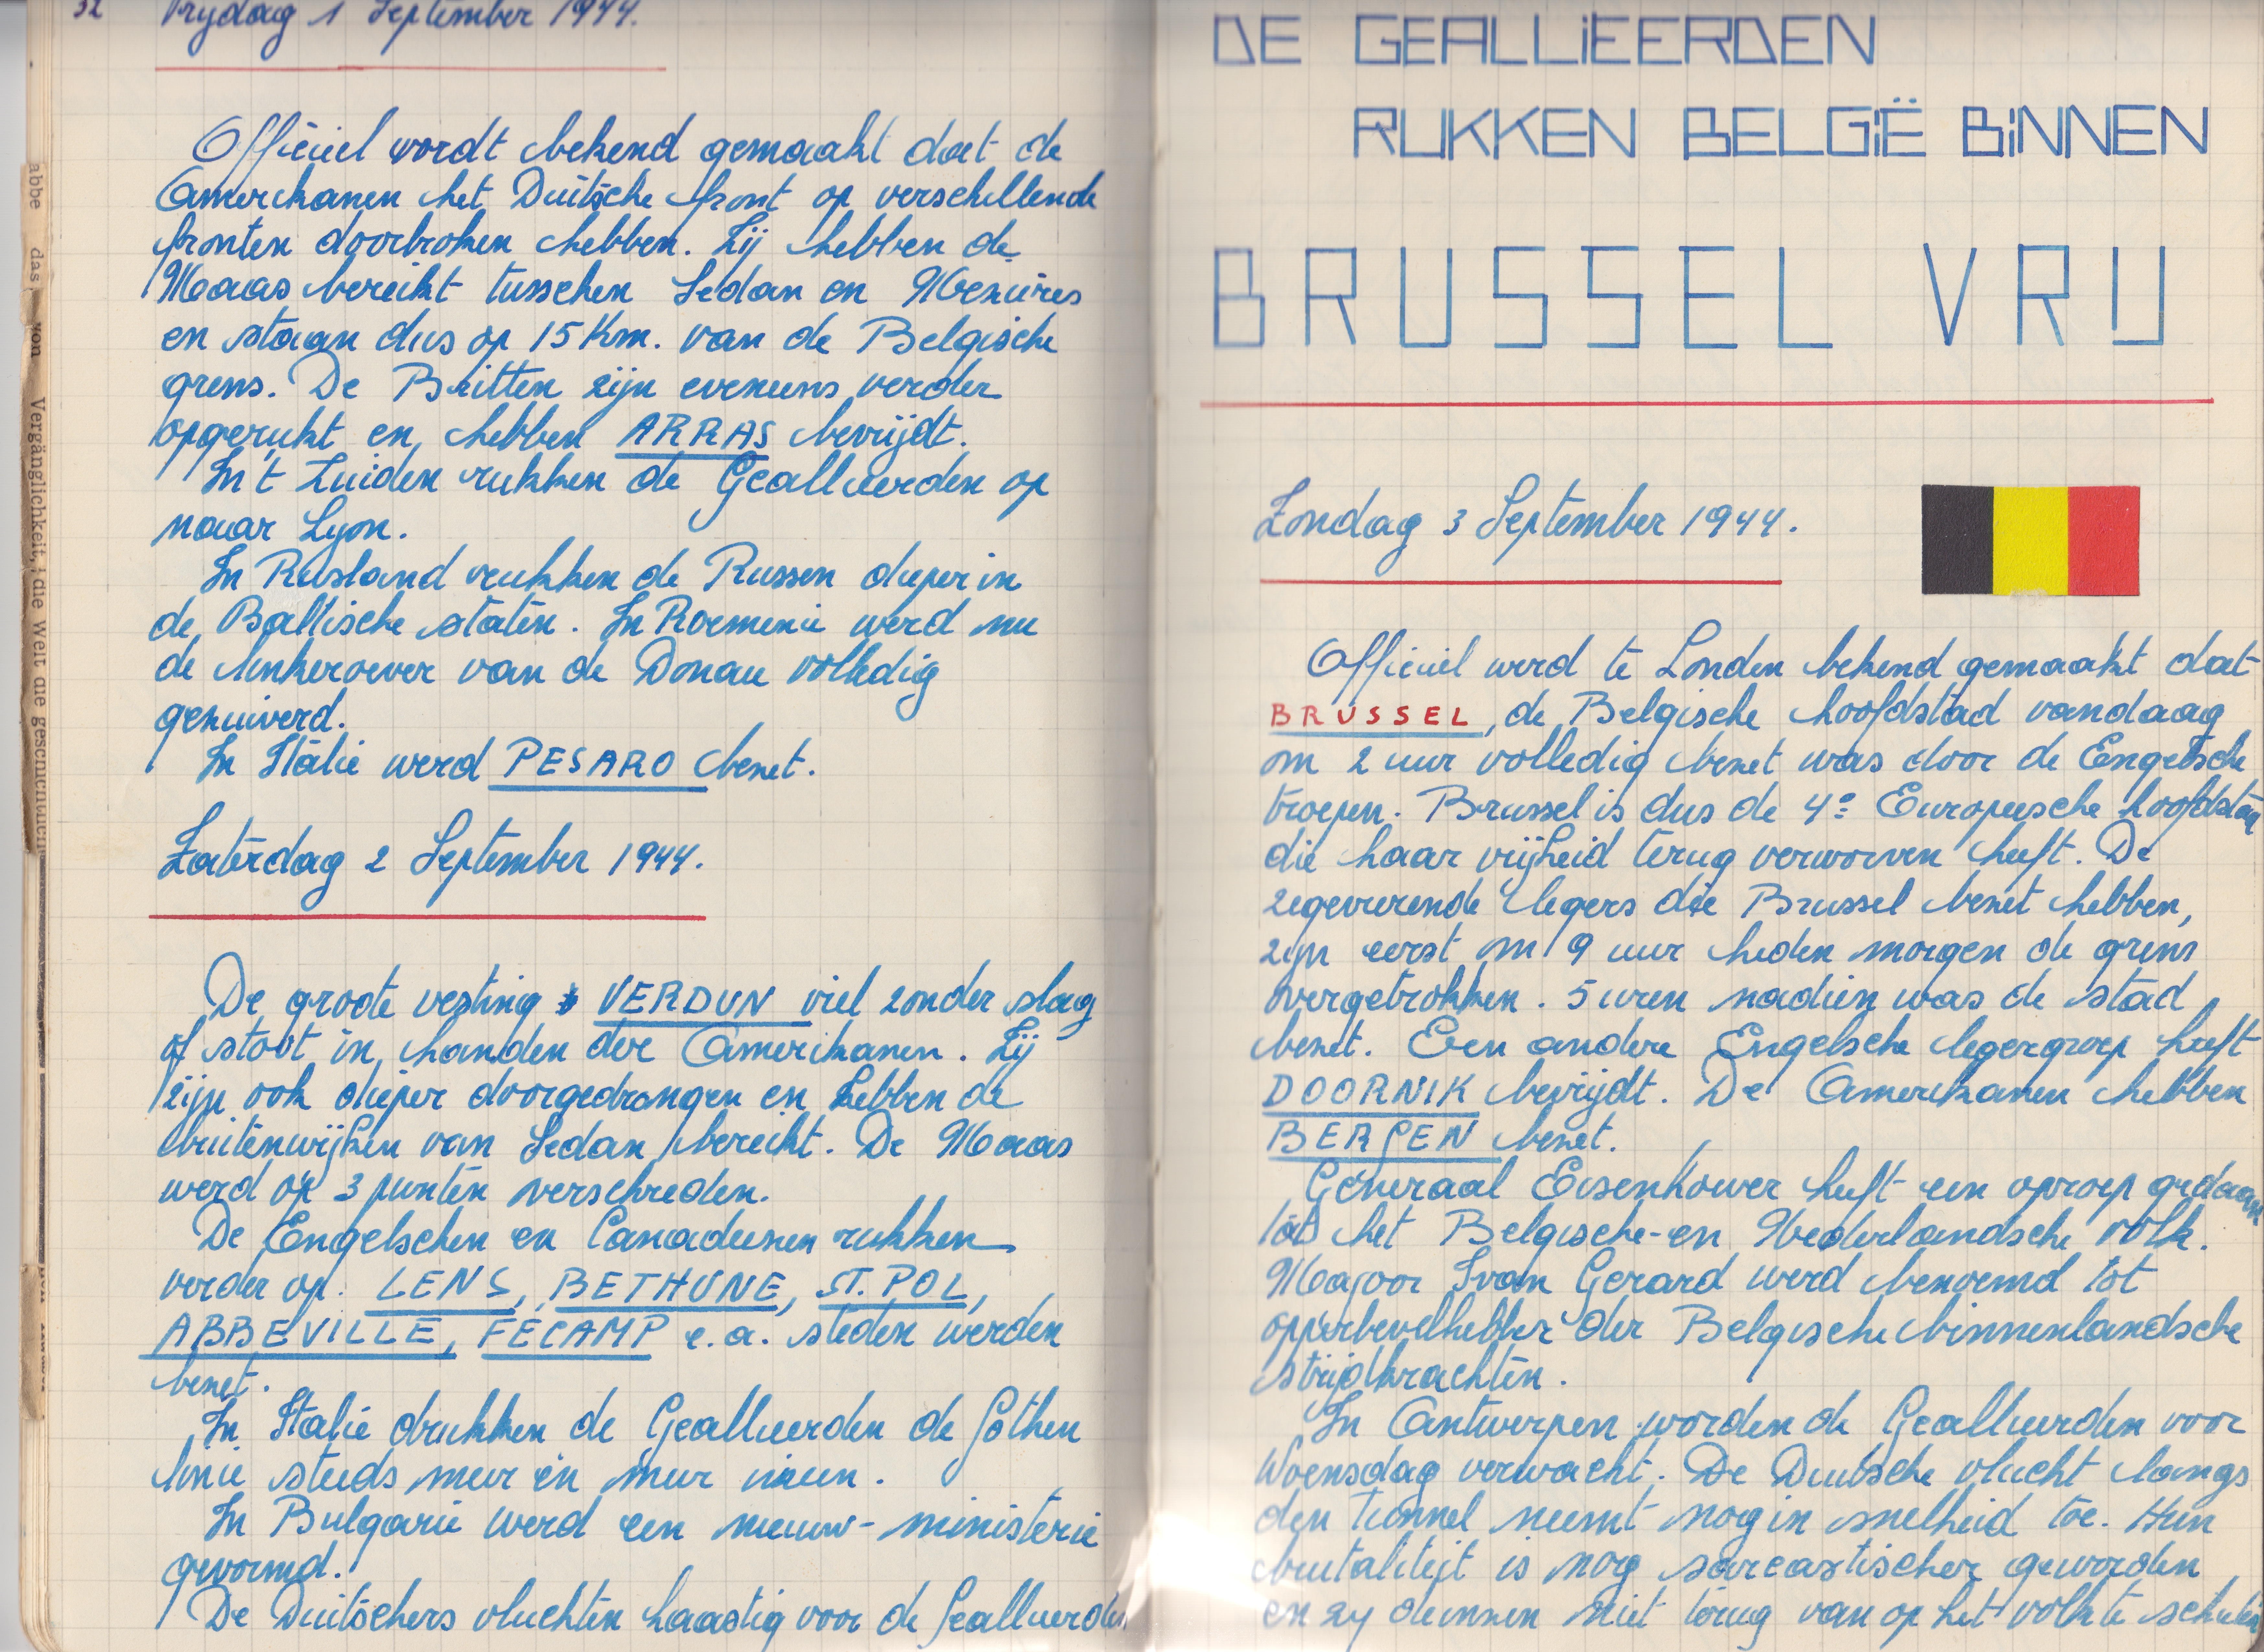 32 Vrijdag 1 September 1944.
Officieel wordt bekend gemaakt dat de
Amerikanen het Duitsche front op verschillende
fronten doorbroken hebben. Zij hebben de
Maas bereikt tusschen Sedan en Mezières
en staan dus op 15 Km. van de Belgische
grens. De Britten zijn eveneens verder
opgerukt en hebben ARRAS bevrijdt.
In 't Zuiden rukken de Geallieerden op
naar Lyon.
In Rusland rukken de Russen dieper in
de Baltische staten. In Roemenië werd nu
de linkeroever van de Donau volledig
gezuiverd.
In Italië werd PESARO bezet.
Zaterdag 2 September 1944.
De groote vesting VERDUN viel zonder slag
of stoot in handen der Amerikanen. Zij
zijn ook dieper doorgedrongen en hebben de
buitenwijken van Sedan bereikt. De Maas
werd op 3 punten verschreden.
De Engelschen en Canadeezen rukken
verder op. LENS, BETHUNE, ST. POL,
ABBEVILLE, FECAMP e.a. steden werden
bezet.
In Italië drukken de Geallieerden de Gothen
linie steeds meer en meer ineen.
In Bulgarië werd een nieuw-ministerie
gevormd.
De Duitschers vluchten haastig voor de Geallieerden
abbe das von Vergänglichkeit, die Welt die geschichtlichen
DE GEALLIEERDEN
RUKKEN BELGIË BINNEN
BRUSSEL VRIJ
Zondag 3 September 1944.
Officieel werd te Londen bekend gemaakt dat
BRUSSEL, de Belgische hoofdstad vandaag
om 2 uur volledig bezet was door de Engelsche
troepen. Brussel is dus de 4e Europeesche hoofdstad
die haar vrijheid terug verworven heeft. De
zegevierende legers die Brussel bezet hebben,
zijn eerst om 9 uur heden morgen de grens
overgetrokken. 5 uren nadien was de stad
bezet. Een andere Engelsche legergroep heeft
DOORNIK bevrijdt. De Amerikanen hebben
BERGEN bezet.
Generaal Eisenhower heeft een oproep gedaan
tot het Belgische-en Nederlandsche volk.
Majoor Ivan Gerard werd benoemd tot
opperbevelhebber der Belgische binnenlandsche
strijdkrachten.
In Antwerpen worden de Geallieerden voor
Woensdag verwacht. De Duitsche vlucht langs
den tunnel neemt nog in snelheid toe. Hun
brutaliteit is nog sarcastischer geworden
en zij deinzen niet terug van op het volk te schieten